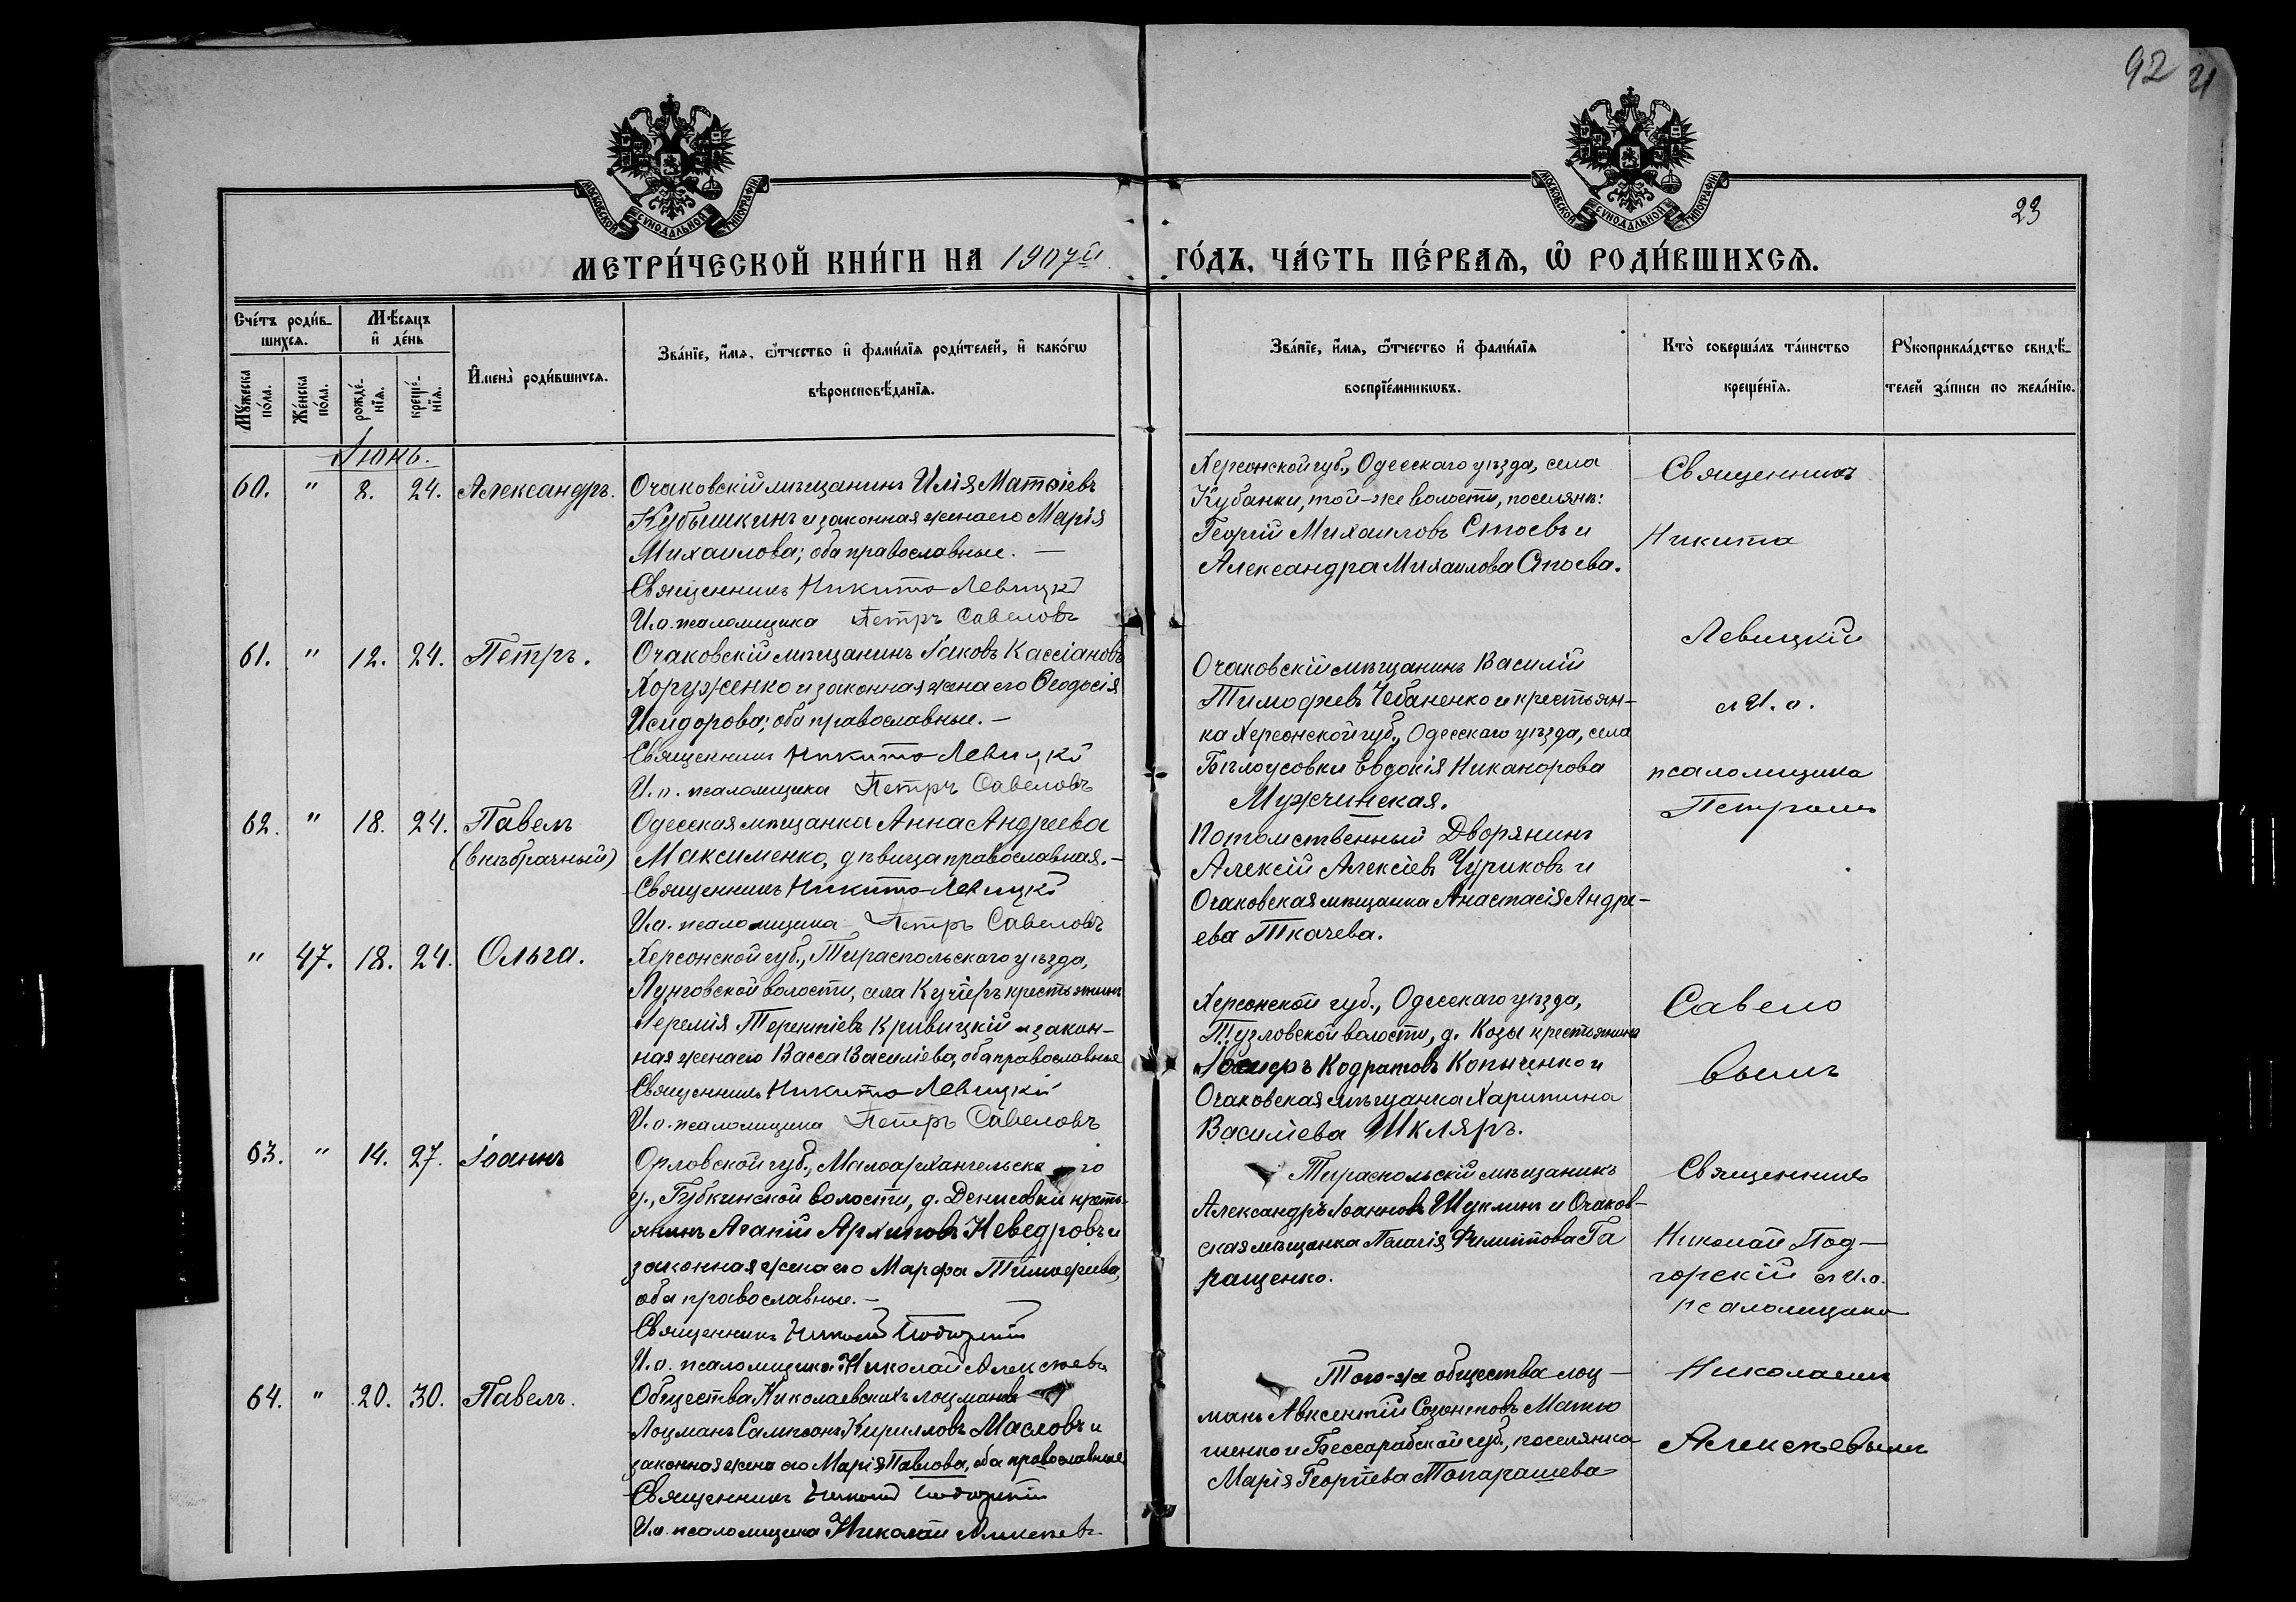 92
21
МОСКОВСКОЙ СѴНОДАЛЬНОЙ ТИПОГРАФІИ.
МОСКОВСКОЙ СѴНОДАЛЬНОЙ ТИПОГРАФІИ.
23
МЕТРИ́ЧЕСКОЙ КНИ́ГИ НА 1907й ГО́ДЪ, ЧА́СТЬ ПЕ́РВАѦ, Ѡ РОДИ́ВШИХСѦ.
Сче́тъ роди́в-
шихсѧ.
Мꙋ́жеска по́ла.
Же́нска по́ла.
Мѣ́сѧцъ
и҆ де́нь
рожде́нїѧ.
креще́нїѧ.
И҆мена̀ роди́вшихсѧ.
Зва́нїе, и҆́мѧ, ѻ҆́тчество и҆ фами́лїѧ роди́телей, и҆ како́гѡ
вѣроисповѣ́данїѧ.
Зва́нїе, и҆́мѧ, ѻ҆́тчество и҆ фами́лїѧ
воспрїе́мникѡвъ.
Кто̀ соверша́лъ та́инство
креще́нїѧ.
Рꙋкоприкла́дство свидѣ́-
телей за́писи по жела́нїю.
Іюнь.
60. " 8. 24. Александръ.
Очаковскій мѣщанинъ Илія Матѳіевъ
Кубышкинъ и законная жена его Марія
Михаилова; оба православные. —
Священникъ Никита Левицкій
И.о. псаломщика Петръ Савеловъ
Херсонской губ., Одесскаго уѣзда, села
Кубанки, той-же волости, поселяне:
Георгій Михаиловъ Стоевъ и
Александра Михаилова Стоева.
Священникъ
Никита
Левицкій
и И. о.
псаломщика
Петромъ
61. " 12. 24. Петръ.
Очаковскій мѣщанинъ Іаковъ Кассіановъ
Хоруженко и законная жена его Ѳеодосія
Исидорова; оба православные. —
Священникъ Никита Левицкій
И. о. псаломщика Петръ Савеловъ
Очаковскій мѣщанинъ Василій
Тимофеевъ Чебаненко и крестьян-
ка Херсонской губ., Одесскаго уѣзда, села
Бѣлоусовки Евдокія Никанорова
Мужчинская.
62. " 18. 24. Павелъ
(внѣбрачный)
Одесская мѣщанка Анна Андреева
Максименко, дѣвица православная. —
Священникъ Никита Левицкій
И.о. псаломщика Петръ Савеловъ
Потомственный Дворянинъ
Алексій Алексіевъ Чуриковъ и
Очаковская мѣщанка Анастасія Андре-
ева Ткачева.
" 47. 18. 24. Ольга.
Херсонской губ., Тираспольскаго уѣзда,
волости, села крестьянинъ
Іеремія Терентіевъ Кривицкій и закон-
ная жена его Васса Василіева, оба православные
Священникъ Никита Левицкій
И. о. псаломщика Петръ Савеловъ
Херсонской губ., Одесскаго уѣзда,
Тузловской волости, д. Козы крестьянинъ
Кодратовъ Копыченко и
Очаковская мѣщанка Харитина
Василіева Шкляръ.
Савело
вымъ
63. " 14. 27. Іоаннъ
Орловской губ., Малоархангельскаго
у., Губкинской волости, д. Денисовки кресть-
янинъ Агапій Архиповъ Неведровъ и
законная жена его Марфа Тимофеева,
оба православные. —
Священникъ Николай Подгорскій
И. о. псаломщика Николай Алексѣевъ
Тираспольскій мѣщанинъ
Александръ Іоанновъ Шуклинъ и Очаков-
ская мѣщанка Пелагія Филиппова Га
ращенко.
Священникъ
Николай Под-
горскій и И.о.
псаломщика
Николаемъ
Алексѣевымъ
64. " 20. 30. Павелъ.
Общества Николаевскихъ лоцмановъ
Лоцманъ Сампсонъ Кирилловъ Масловъ и
законная жена его Марія Павлова, оба православные
Священникъ Николай Подгорскій
И.о. псаломщика Николай Алексѣевъ
Того-же общества лоц-
манъ Авксентій Созонтовъ Матю
шенко и Бессарабской губ., поселянка
Марія Георгіева Топарашева